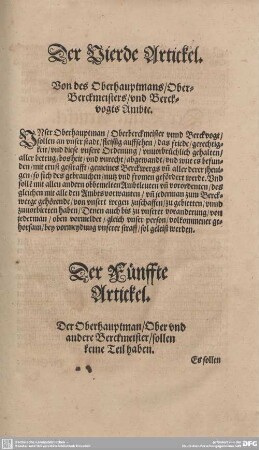 Der Vierde Artickel.
Von des Oberhauptmans/Ober-
Berckmeisters/vnd Berck-
vogts Ambte.
VNser Oberhauptman/Oberberckmeister vnnd Berckvogt/
sollen an vnser stadt/fleissig auffsehen/das friede/gerechtig-
keit/vnd diese vnsere Ordenung/vnuerbrüchlich gehalten/
aller betrug/bosheit/vnd vnrecht/abgewandt/vnd wue es befun-
den/mit ernst gestrafft/gemeines Berckwergs vñ aller derer/
so sich des gebrauchen/nutz vnd fromen gefördert werde. Vnd
soll mit allen andern obbemelten Ambtleuten vñ verordenten/des
gleichen mit alle den Ambtsvorwanten/vñ jederman zum Berck-
werge gehörende/von vnsert wegen zuschaffen/zu gebieten/vnnd
zuuorbieten haben/Denen auch bis zu vnserer voranderung/von
jederman/oben vormeldet/gleich vnser person/volkommener ge-
horsam/bey vormeydung vnserer straff/sol geleist werden.
Der Fünffte
Artickel.
Der Oberhauptman/Ober vnd
andere Berckmeister/sollen
keine Teil haben.
Es sollen